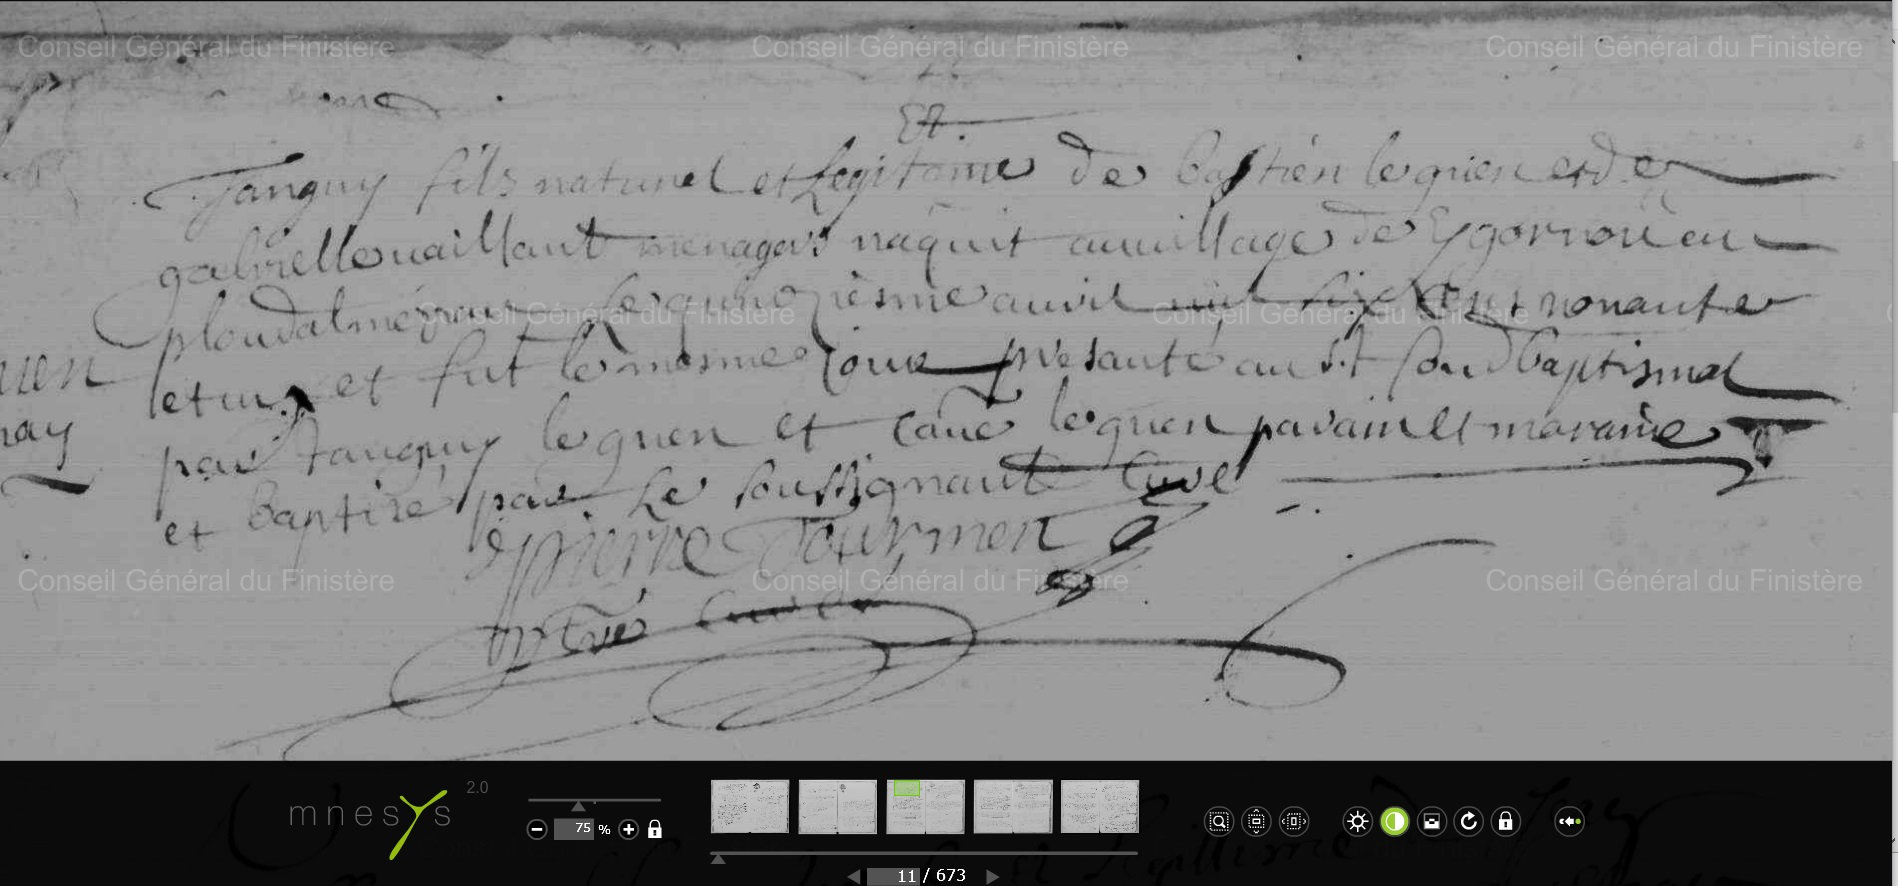 Conseil Général du Finistère Conseil Général du Finistère Conseil Général du Finistère
Et.
Tanguy fils naturel et Legitime de bastien leguen et de
gabrielle vaillant menagers naquit au village de
ploudalmezeau le quinzièsme auvil mil six cent nonante
Conseil Général du Finistère Conseil Général du Finistère Con
et un et fut le mesme jour presanté au st fond baptismal
uen
par tanguy le guen et leguen parain et maraine
nay
et baptisé par Le soussignant Curé
pierre Tourmen
Conseil Général du Finistère Conseil Général du Finistère Conseil Général du Finistère
ptre Curé
mnesys 2.0
75 %
11 / 673